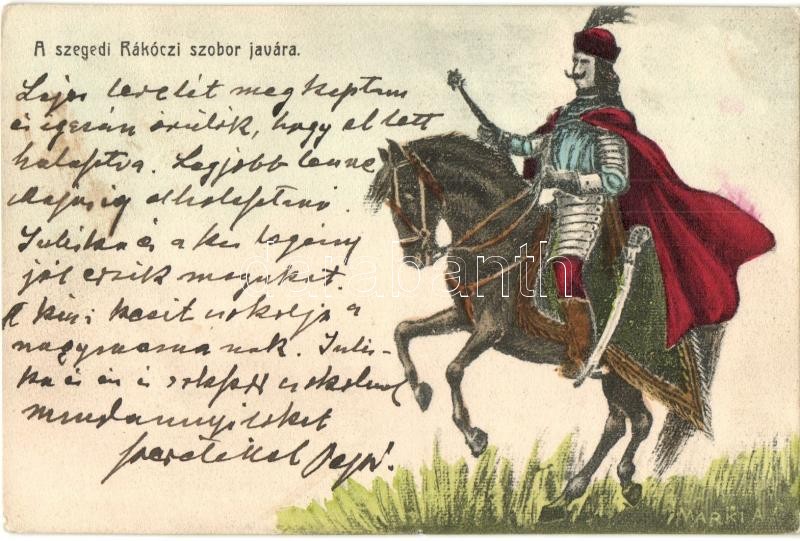 A szegedi Rákóczi szobor javára.
Lajos levelét megkaptam
és igazán örülök, hogy el lett
halasztva. Legjobb lenne
Májusig elhalasztani.
Juliska és a kis legény
jól érzik magukat.
A kis kezit csókolja a
nagymamának. Julis-
ka és én is sokszor csókolunk
mindannyitokat
szeretettel
darabanth
MÁRKI A